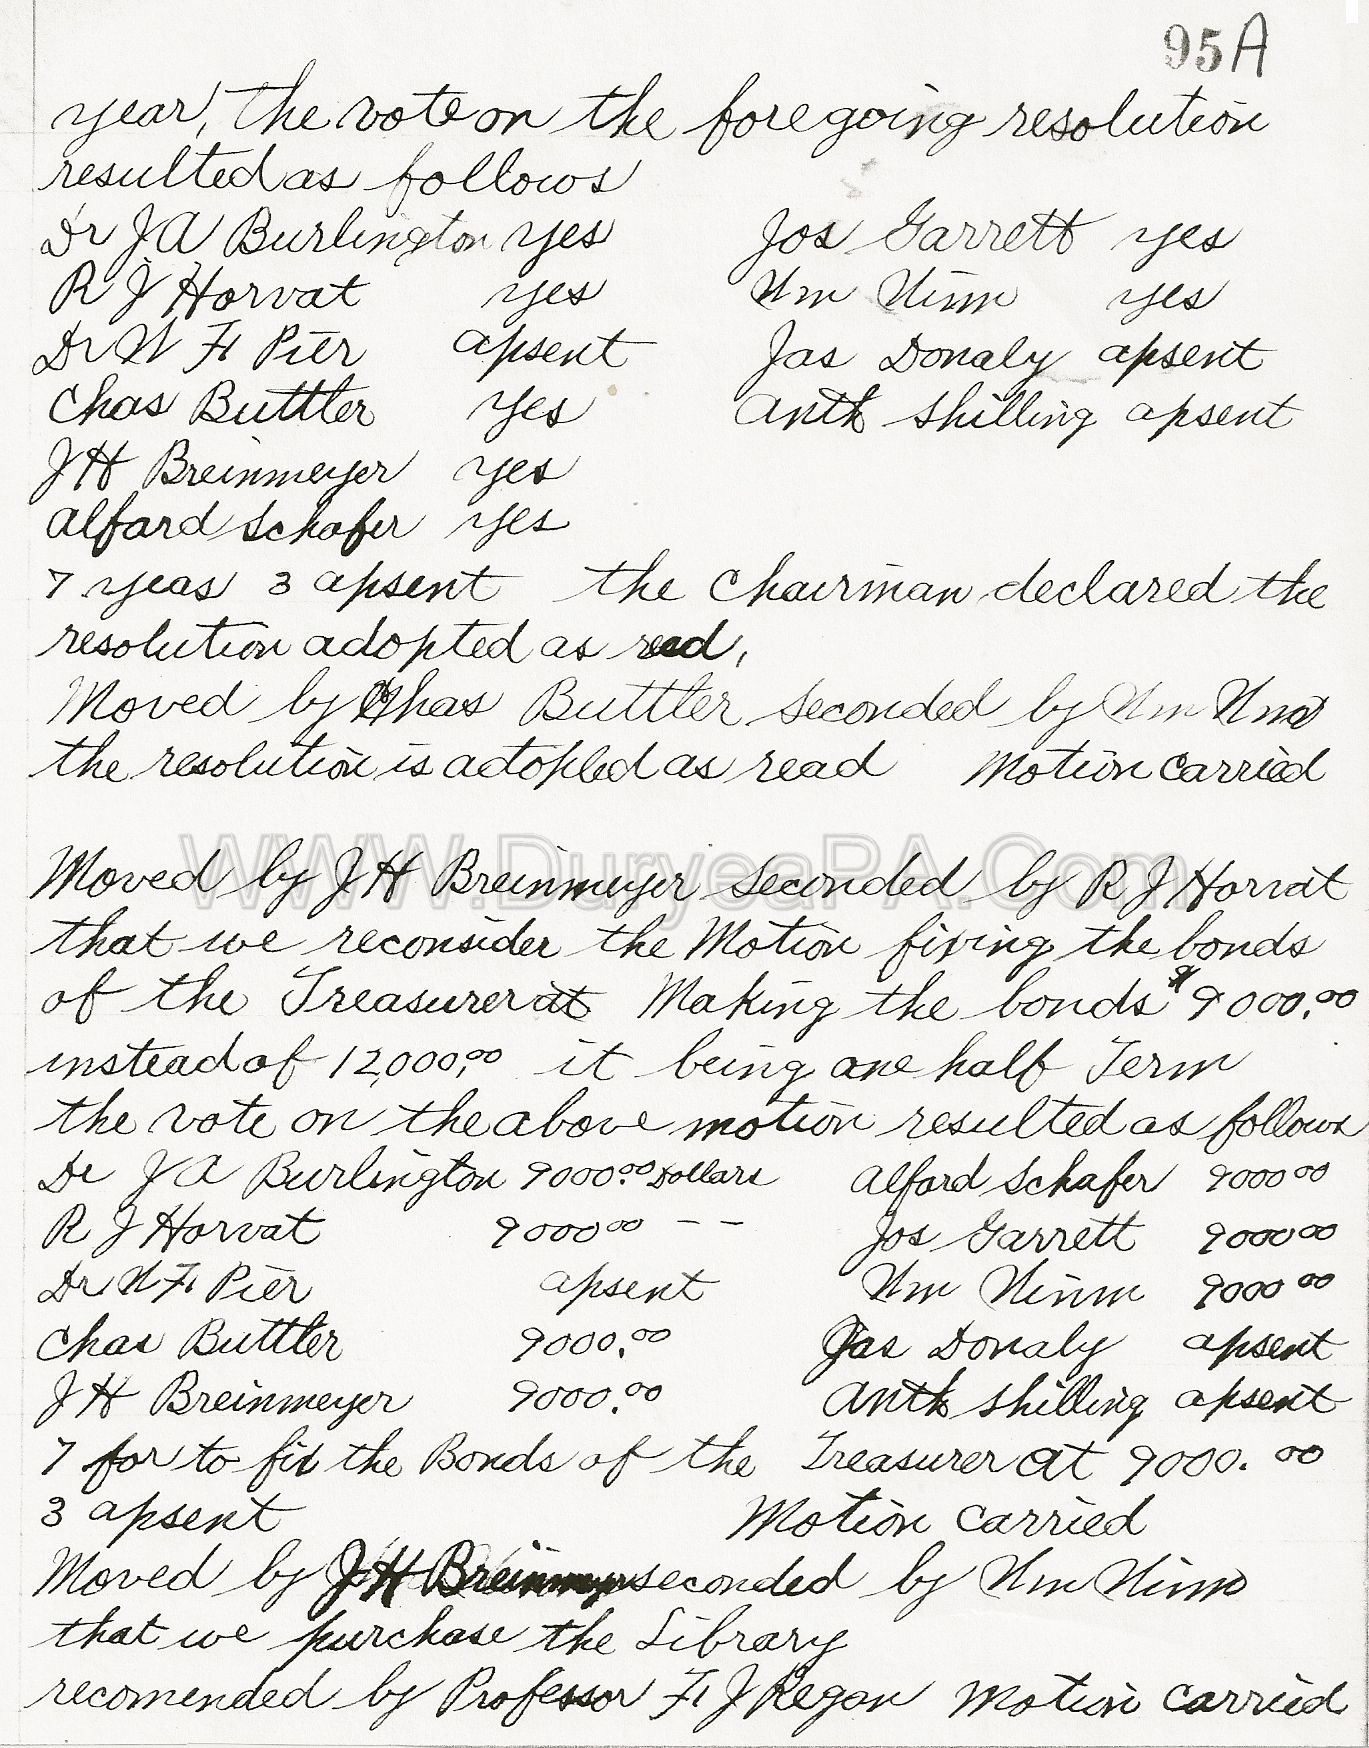 95A
year, the vote on the foregoing resolution
resulted as follows
Dr J A Burlington yes Jos Garrett yes
R J Horvat yes Wm Winn yes
Dr W F Pier apsent Jas Donaly apsent
Chas Buttler yes Anth Shilling apsent
J H Breinmeyer yes
Alfard Schafer yes
7 yeas 3 apsent the Chairman declared the
resolution adopted as read,
Moved by Chas Buttler seconded by Wm
the resolution is adopted as read Motion carried
WWW.DuryeaPA.Com
Moved by J H Breinmeyer seconded by R J Horvat
that we reconsider the Motion fixing the bonds
of the Treasurer at Making the bonds at 9000.00
instead of 12,000.00 it being one half Term
the vote on the above motion resulted as follows
Dr J A Burlington 9000.00 Dollars Alfard Schafer 9000 00
R J Horvat 9000 00 -- Jos Garrett 9000 00
Dr W F Pier apsent Wm Winn 9000 00
Chas Buttler 9000.00 Jas Donaly apsent
J H Breinmeyer 9000.00 Anth Shilling apsent
7 for to fix the Bonds of the Treasurer at 9000.00
3 apsent Motion carried
Moved by J H Breinmeyer seconded by Wm Winn
that we purchase the Library
recomended by Professor F J Regan Motion carried